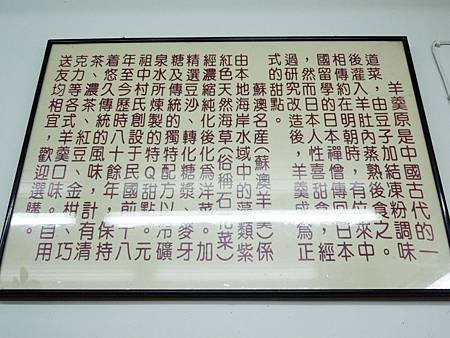 羊羹原是中國古代的一
道菜，由豆子加結凍粉調味
後灌入羊肚內蒸熟後食之。
相傳約在明朝時，有位來中
國留學的日本禪僧傳回日本
，然而日本人性喜甜食，經
過研究改造後，羊羹成為正
式的甜點。
蘇澳名產（蘇澳羊羹）係
由本地海岸水域中的藻類紫
紅色天然海草（俗稱石花菜）
經濃縮純化後化為洋菜。加
精選豆沙、轉化糖漿、麥牙
糖及傳統的獨特配方以冷礦
泉水所煉製的特Q甜點。元
祖中村氏創設于民國前十八
年至今歷時八十餘年，保持
着悠久傳統的風味，計有清
茶、濃茶、紅豆、金柑、巧
克力等各式羊羹口味。自用
送友均相宜，歡迎選購。